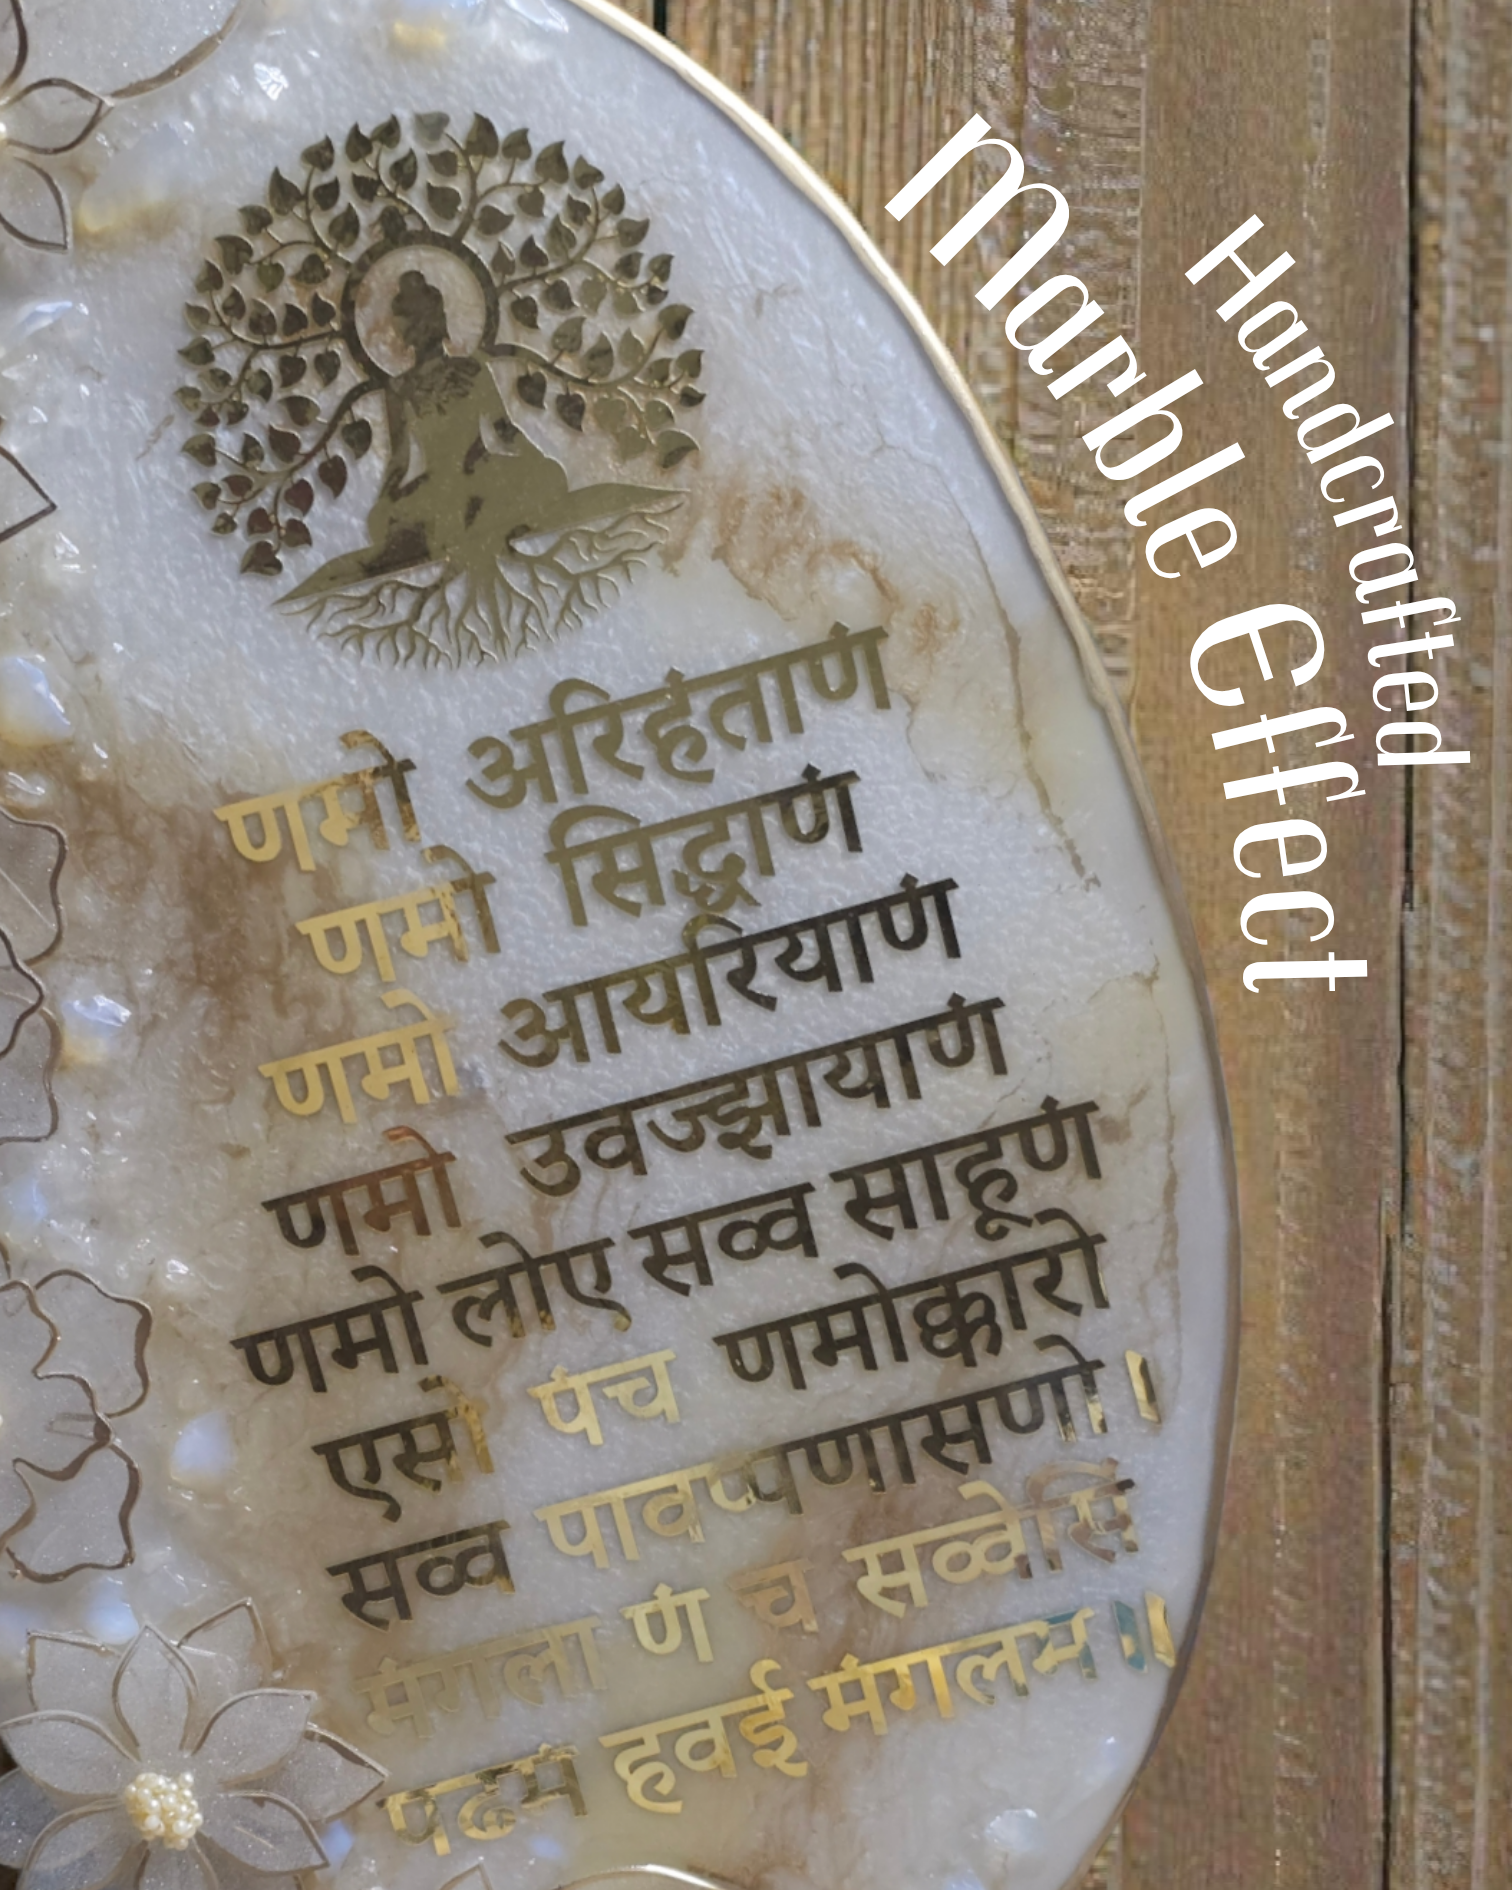 Handcrafted
Marble Effect
णमो अरिहंताणं
णमो सिद्धाणं
णमो आयरियाणं
णमो उवज्झायाणं
णमो लोए सव्व साहूणं
एसो पंच णमोक्कारो
सव्व पावप्पणासणो।
मंगला णं च सव्वेसिं
पढमं हवई मंगलम॥